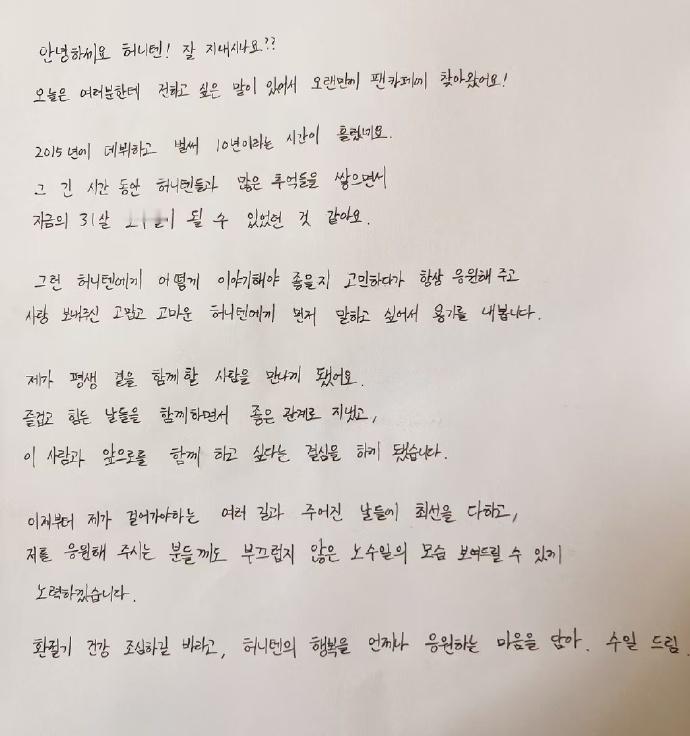 안녕하세요 허니텐! 잘 지내시나요??
오늘은 여러분한테 전하고 싶은 말이 있어서 오랜만에 팬카페에 찾아왔어요!
2015년에 데뷔하고 벌써 10년이라는 시간이 흘렀네요.
그 긴 시간 동안 허니텐들과 많은 추억들을 쌓으면서
지금의 31살 될 수 있었던 것 같아요.
그런 허니텐에게 어떻게 이야기해야 좋을지 고민하다가 항상 응원해 주고
사랑 보내주신 고맙고 고마운 허니텐에게 먼저 말하고 싶어서 용기를 내봅니다.
제가 평생 곁을 함께할 사람을 만나게 됐어요.
즐겁고 힘든 날들을 함께하면서 좋은 관계로 지냈고,
이 사람과 앞으로를 함께 하고 싶다는 결심을 하게 됐습니다.
이제부터 제가 걸어가야하는 여러 길과 주어진 날들에 최선을 다하고,
저를 응원해 주시는 분들께도 부끄럽지 않은 노수일의 모습 보여드릴 수 있게
노력하겠습니다.
환절기 건강 조심하길 바라고, 허니텐의 행복을 언제나 응원하는 마음을 담아. 수일 드림.